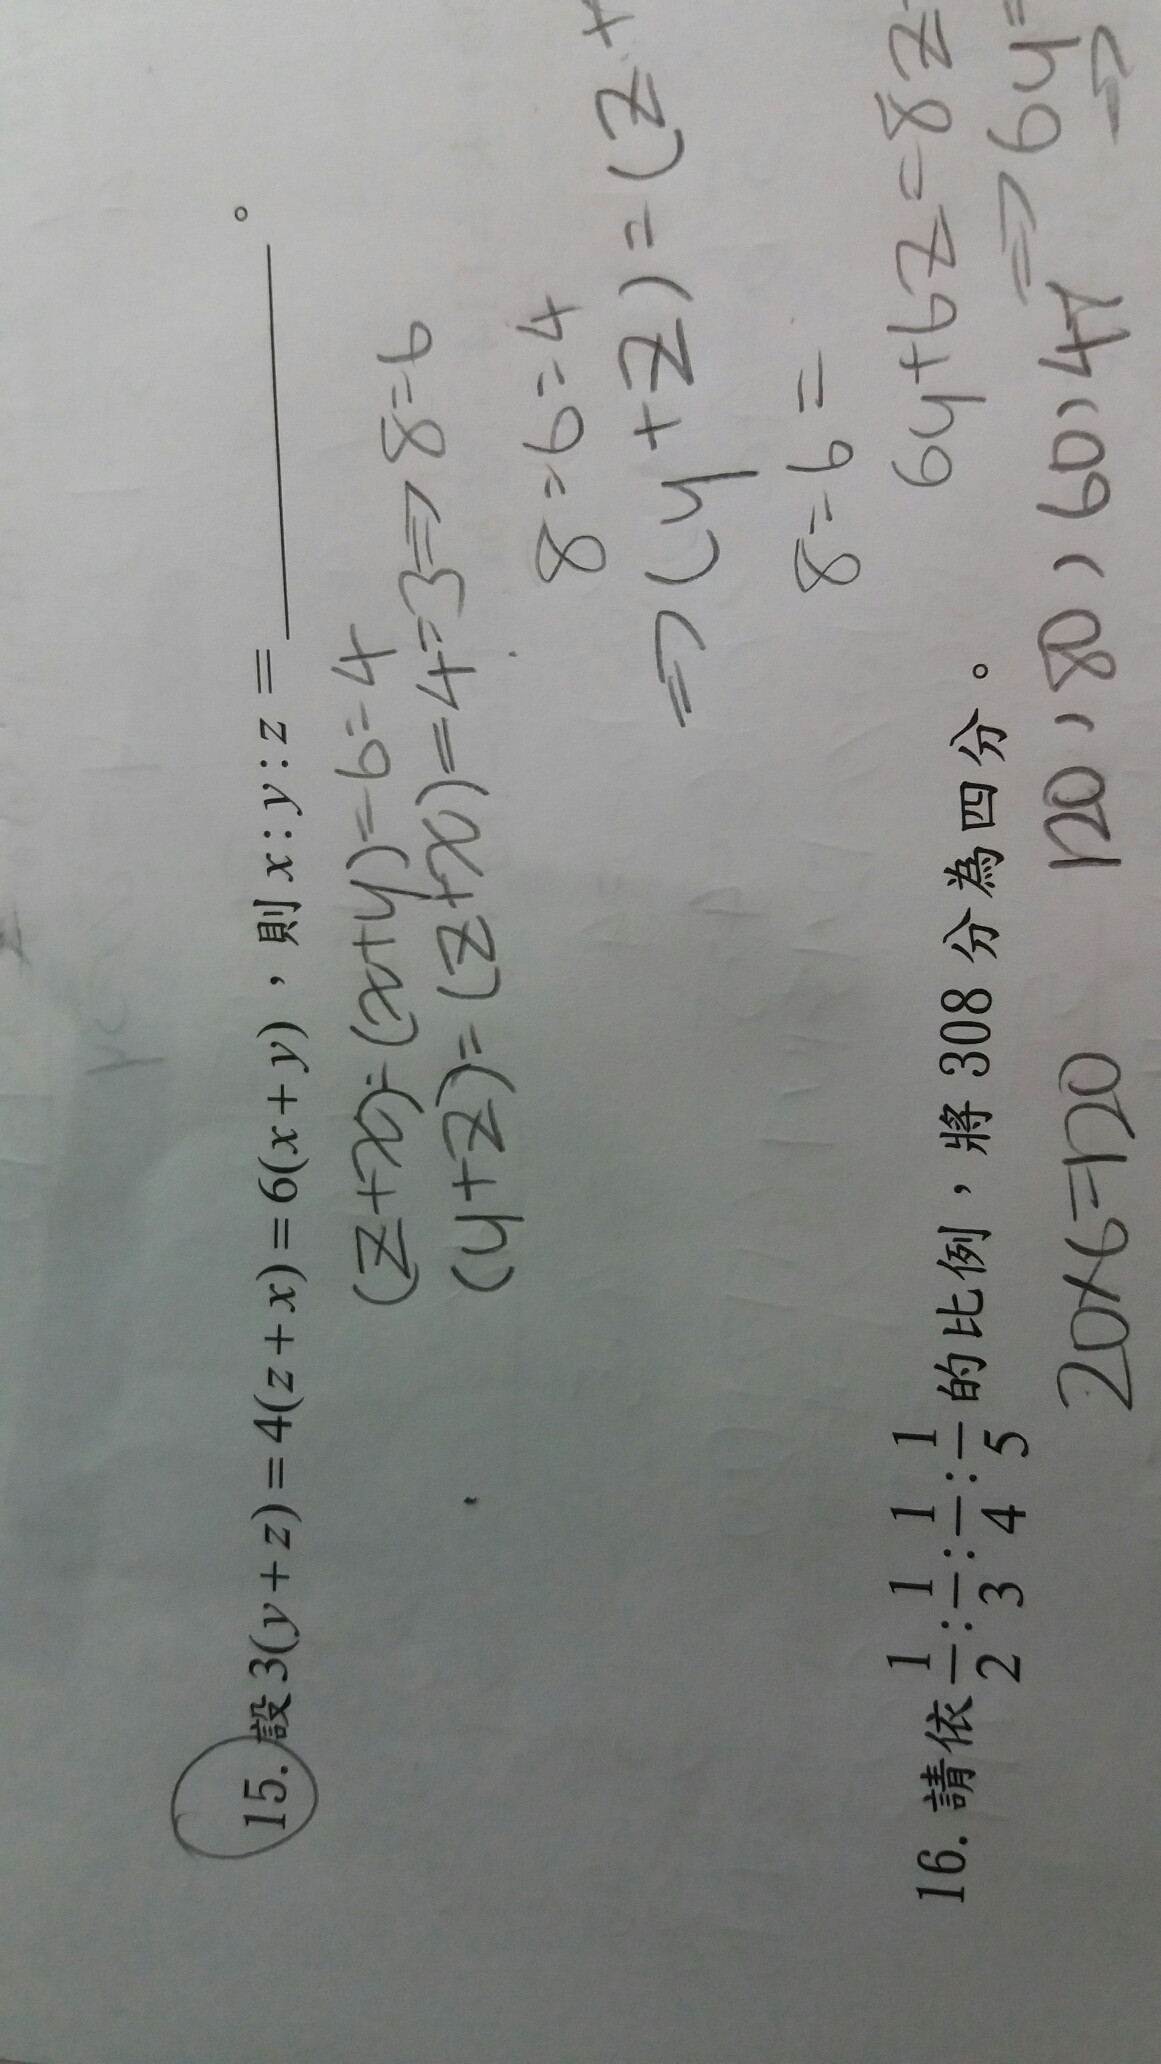 15. 設 3(y+z)=4(z+x)=6(x+y)，則 x:y:z = ________。
(z+x):(x+y)=6=4
(y+z)=(z+x)=4=3⇒8=6
8=6=4
⇒(y+z)=(z+
8=6=
6y+6z=8z
⇒6y=
16. 請依 1/2 : 1/3 : 1/4 : 1/5 的比例，將 308 分為四分。
20×6=120 120，80，60，48